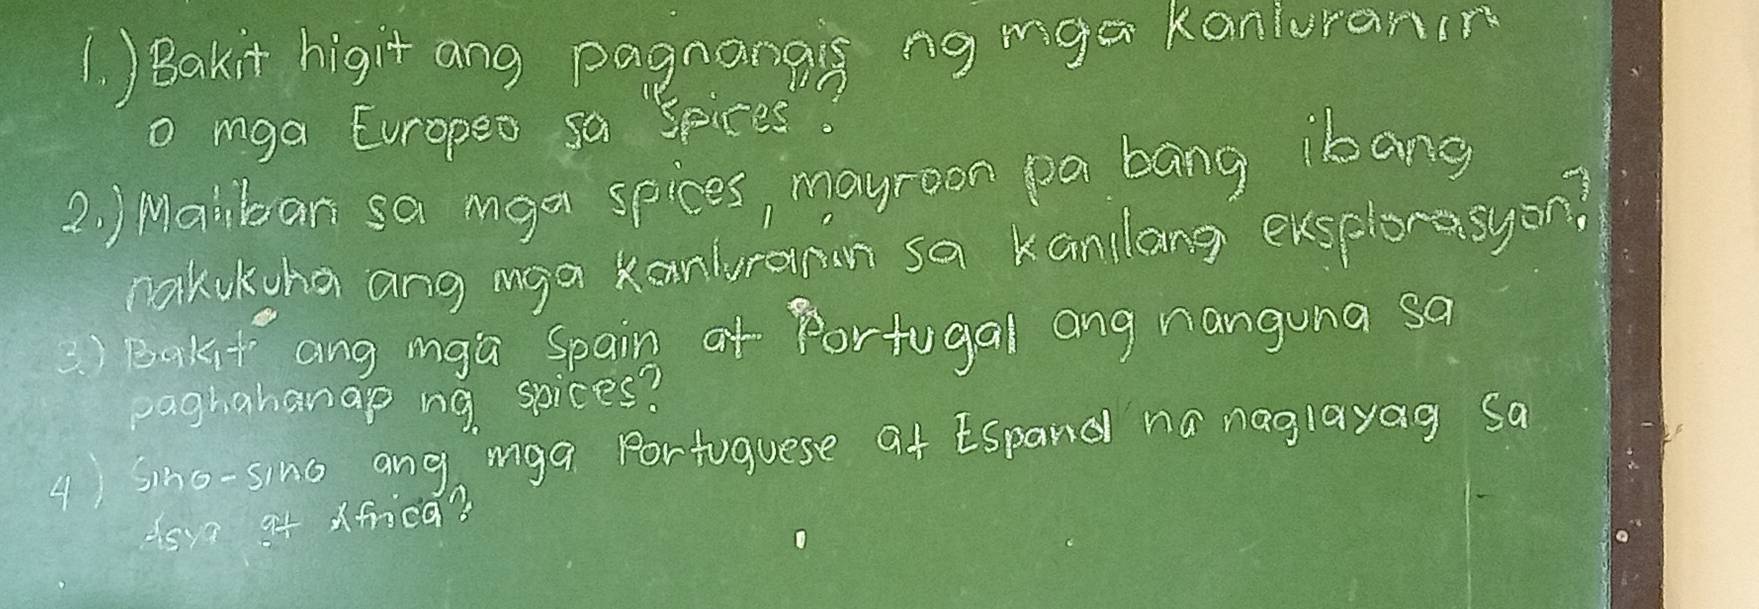 1.) Bakit higit ang pagnanais ng mga kanluranin
o mga Europeo sa "spices"?
2.) Maliban sa mga spices, mayroon pa bang ibang
nakukuha ang mga kanluranin sa kanilang eksplorasyon?
3.) Bakit ang mga Spain at Portugal ang nanguna sa
paghahanap ng spices?
4) Sino-sino ang mga Portuguese at Espanol na naglayag sa
Asya at Africa?